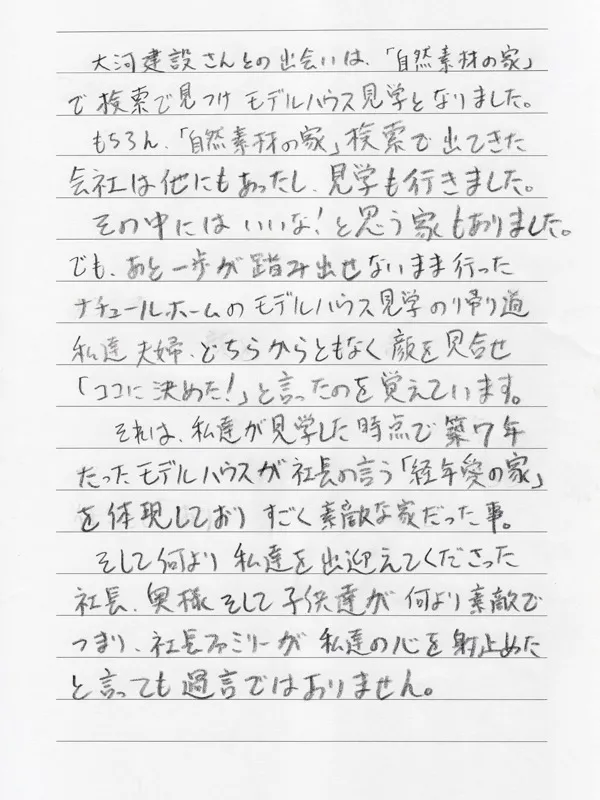 大河建設さんとの出会いは、「自然素材の家」
で検索で見つけモデルハウス見学となりました。
もちろん、「自然素材の家」検索で出てきた
会社は他にもあったし、見学も行きました。
その中にはいいな!と思う家もありました。
でも、あと一歩が踏み出せないまま行った
ナチュールホームのモデルハウス見学の帰り道
私達夫婦、どちらからともなく顔を見合せ
「ココに決めた!」と言ったのを覚えています。
それは、私達が見学した時点で築7年
たったモデルハウスが社長の言う「経年愛の家」
を体現しておりすごく素敵な家だった事。
そして何より私達を出迎えてくださった
社長、奥様そして子供達が何より素敵で
つまり、社長ファミリーが私達の心を射止めた
と言っても過言ではありません。